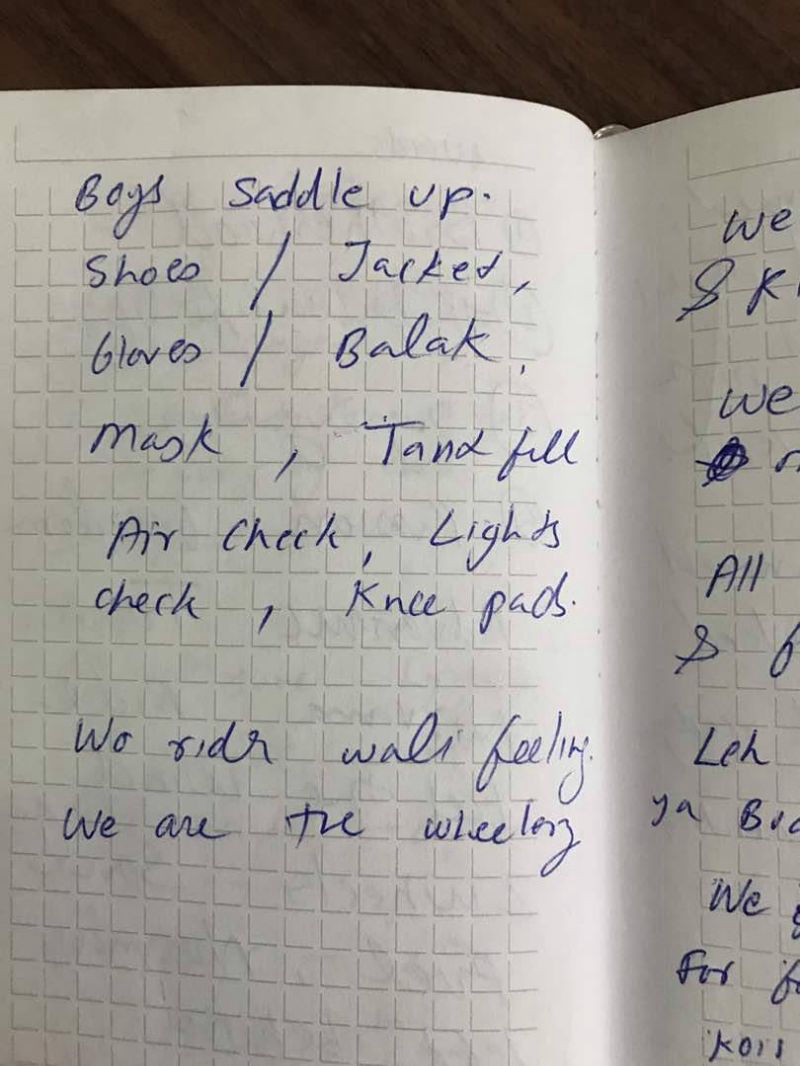 Boys Saddle up.
Shoes / Jacket,
Gloves / Balak,
Mask , Tank fill
Air check, Lights
check , Knee pads.
Wo ride wali feeling.
We are the
We
& K
We
All
&
Leh
ya
We
For